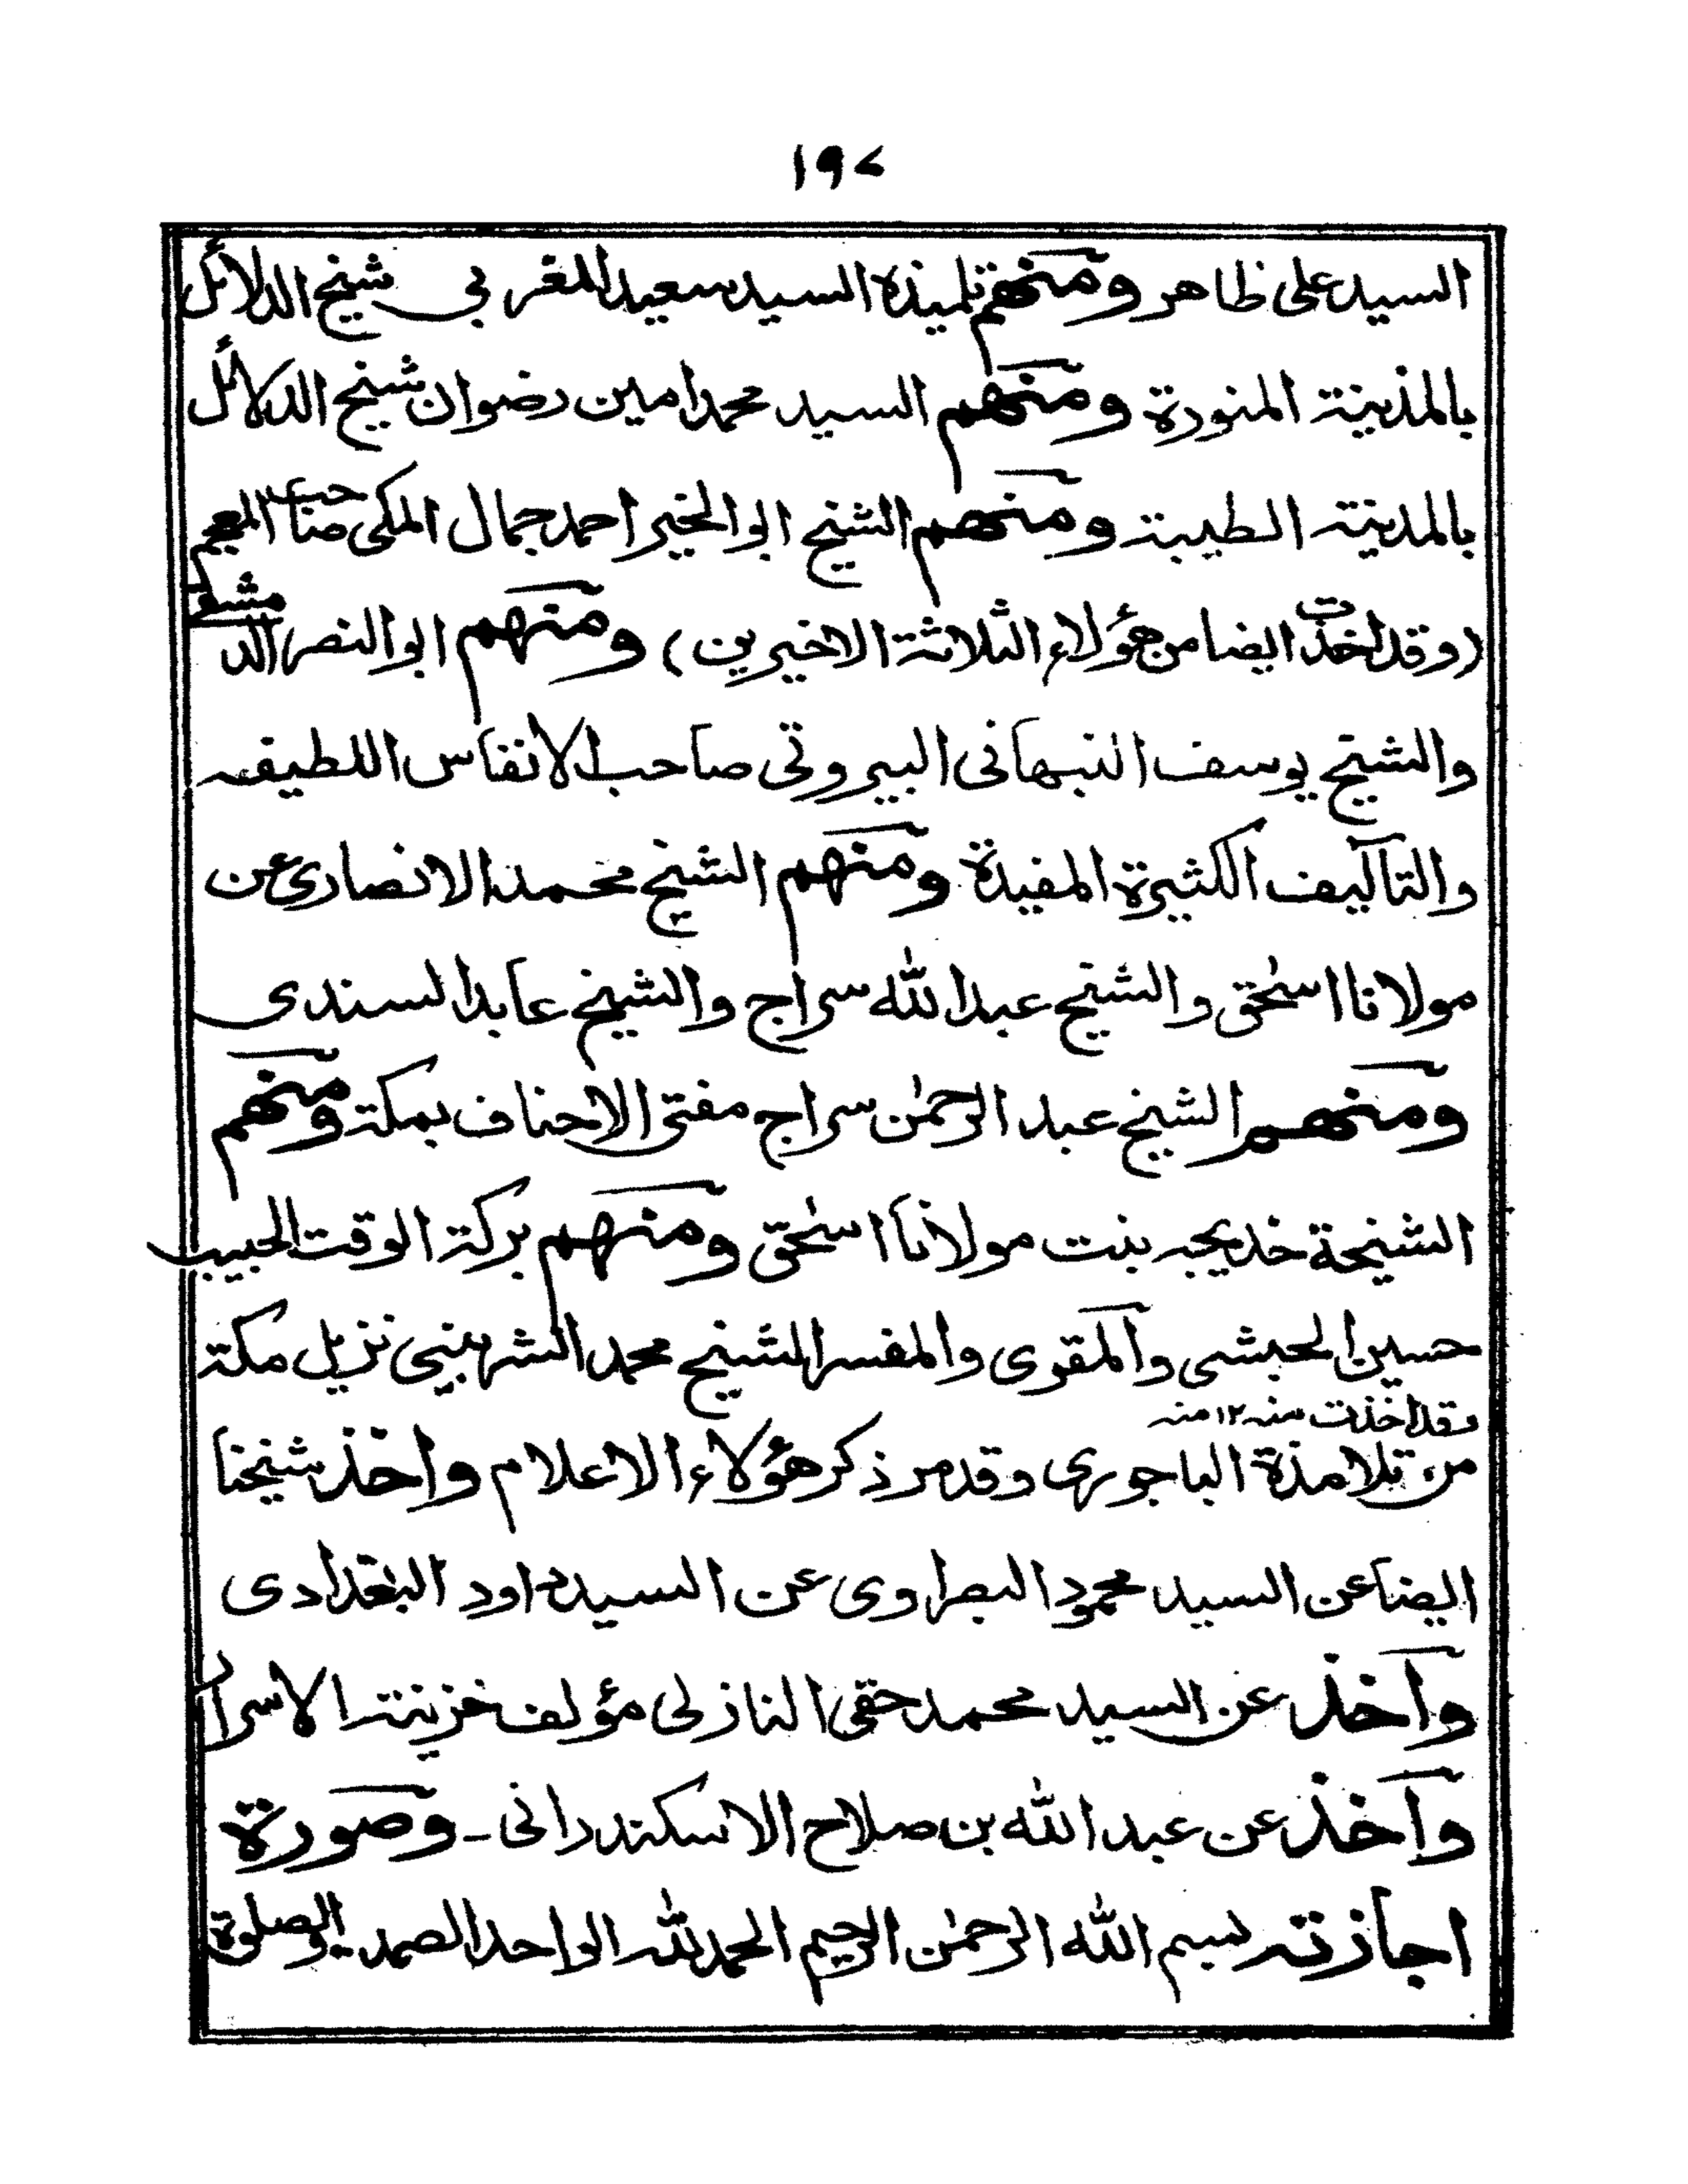 ١٩٧
السيد علی ظاهر ومنهم تلميذه السيد سعيد المغربي شيخ الدلائل
بالمدينة المنورة ومنهم السيد محمد امين رضوان شيخ الدلائل
بالمدينة الطيبة ومنهم الشيخ ابو الخير احمد جمال المكی صاحب المعجم
(وقد اخذت ايضا من هؤلاء الثلاثة الاخيرين) ومنهم ابو النصر الدمشقی
والشيخ يوسف النبهانی البيروتی صاحب الانفاس اللطيفه
والتآليف الكثيرة المفيدة ومنهم الشيخ محمد الانصاری عن
مولانا اسحٰق والشيخ عبد الله سراج والشيخ عابد السندی
ومنهم الشيخ عبد الرحمٰن سراج مفتی الاحناف بمكة ومنهم
الشيخة خديجه بنت مولانا اسحٰق ومنهم بركة الوقت الحبيب
حسين الحبشی والمقری والمفسر الشيخ محمد الشربينی نزيل مكة
وقد اخذت منه ١٢ منه
من تلامذة الباجوری وقد مر ذكر هؤلاء الاعلام واخذ شيخنا
ايضا عن السيد محمود البصراوی عن السيد داود البغدادی
واخذ عن السيد محمد حقی النازلی مؤلف خزينة الاسرار
واخذ عن عبد الله بن صلاح الاسكندرانی ـ وصورة
اجازته بسم الله الرحمٰن الرحيم الحمد لله الواحد الصمد والصلوة